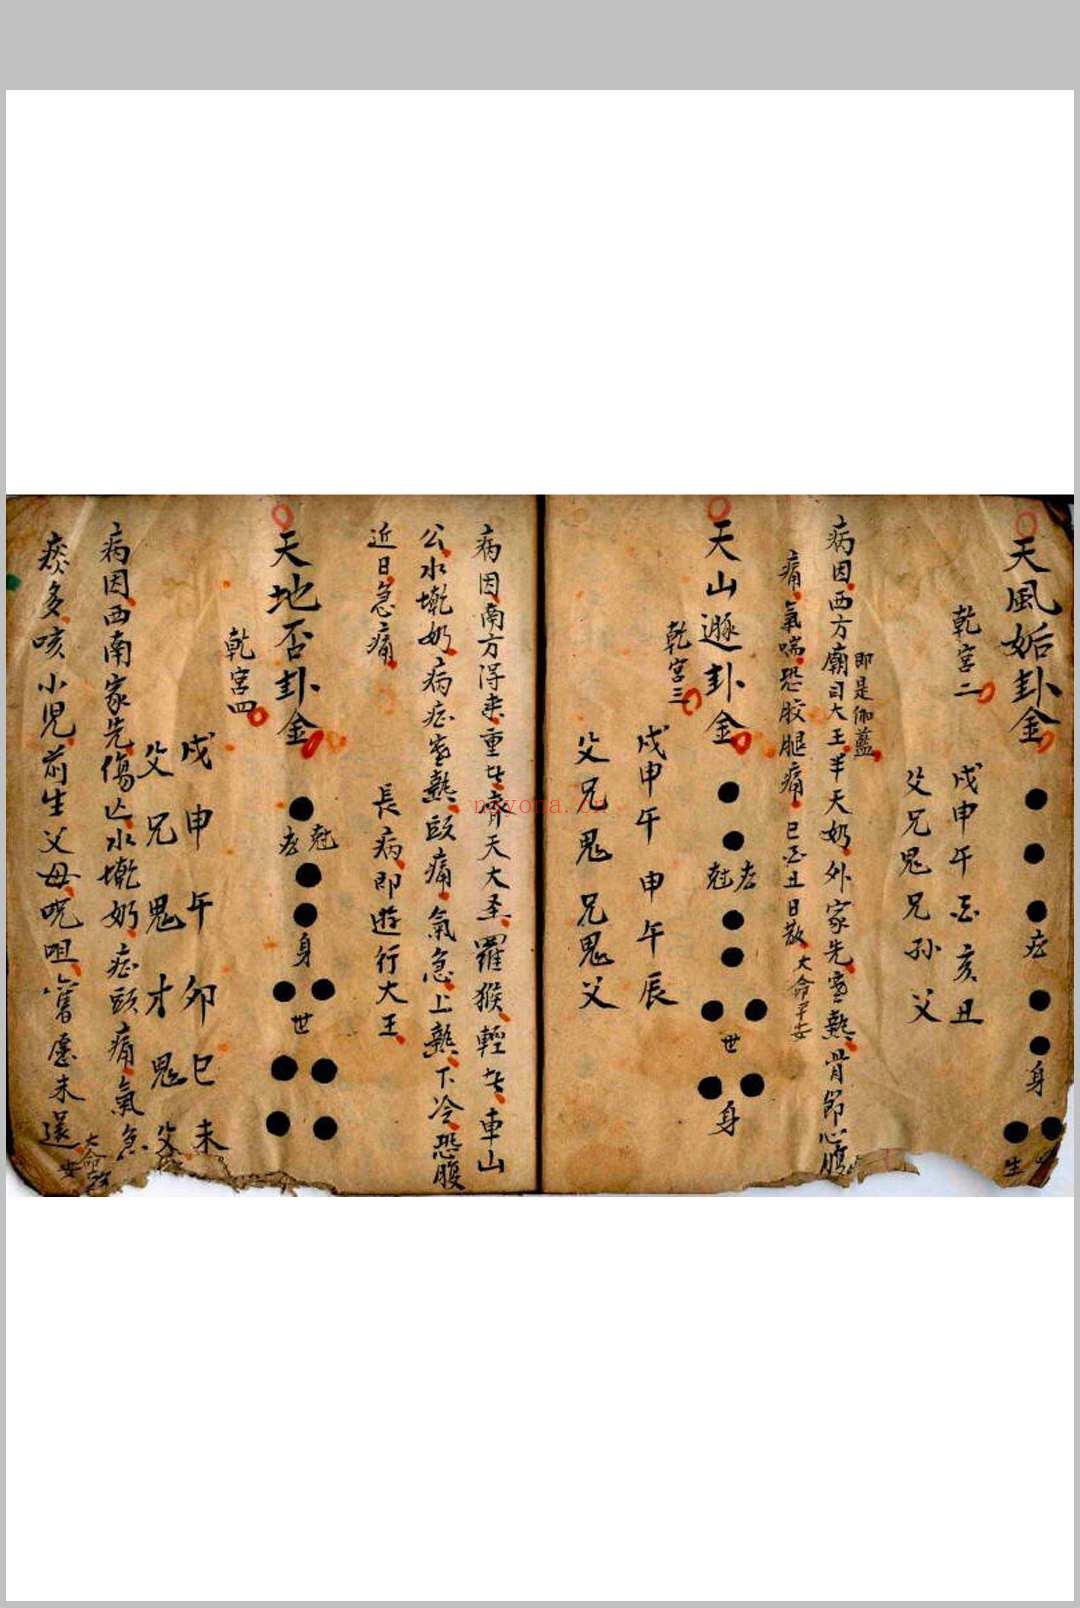 天風姤卦金
乾宮二
身
戌申午酉亥丑
父兄鬼兄孫父
病因西方廟司大王羊天奶外家先寒熱骨節心腹
即是伽藍
痛氣喘恐腰腿痛 巳酉丑日散 大命平安
天山遯卦金
乾宮三
世
身
戌申午申午辰
父兄鬼兄鬼父
病因南方得來重者齊天大圣羅猴輕者車山
公水墘奶病症寒熱頭痛氣急上熱下冷恐腹
近日急痛 長病即遊行大王
天地否卦金
乾宮四
身
世
戌申午卯巳未
父兄鬼才鬼父
病因西南家先傷亡水墘奶症頭痛氣急
痰多咳小兒前生父母咒咀舊愿未還
大命
安